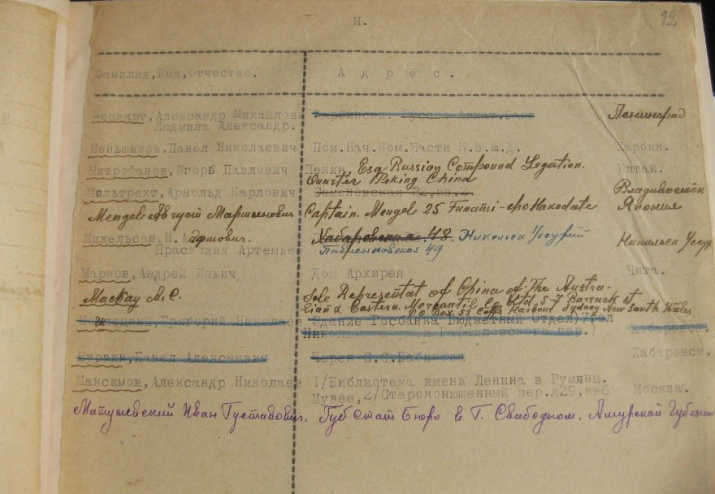 М.
12
Фамилия,Имя,Отчество. Адрес.
Александр Михайлов Ленинград
Людмила Александр.
Меньшиков,Павел Николаевич Пом.Нач.Ком.Части К.В.ж.д. Харбин.
Митрофанов,Игорь Павлович Пекин. Esq. Russian Compound Legation. Китай.
Quarter Peking China
Мольтрехт,Арнольд Карлович Владивосток
Менгель Мартынович Captain. Mengel 25 Funami-cho Hakodate Япония
Михельсон, Хабаровская 48. Никольск Уссурий Никольск Уссур
Прасковия Артемье 49
Марков,Андрей Ильич Дом Архирея Чита.
Mackay A.C. Sole Representat of China of The Austra-
Eastern. Mercantil Co Ltd, 5-7 Barrack st
P.O. Box 53 Harbour Sydney New South Wales
Григорий Николаев Здание Госбанка Бюджетный Отдел)
Муравин,Павел Алексеевич Через Хабаровск.
Максимов,Александр Николаев 1/Библиотека имени Ленина в Румянц.
Музее,2/Староконюшенный пер.д29,кв6 Москва.
Матушевский Иван Густавович. Губ Стат Бюро в Г. Свободном. Амурской Губернии